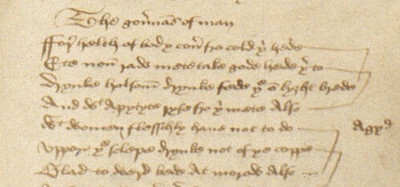 The gou'nans of man
ffor helth of body cou' fro cold þi hede
Ete non rawe mete take gode hede þer to
drynke holsom drynke fede þe on lyght brede
And wt apytyte ryse fro þi mete Also
wt women flesschly haue not to do
Vppon þi slepe drynke not of þe coppe
Glad to werd bedd At morow Also